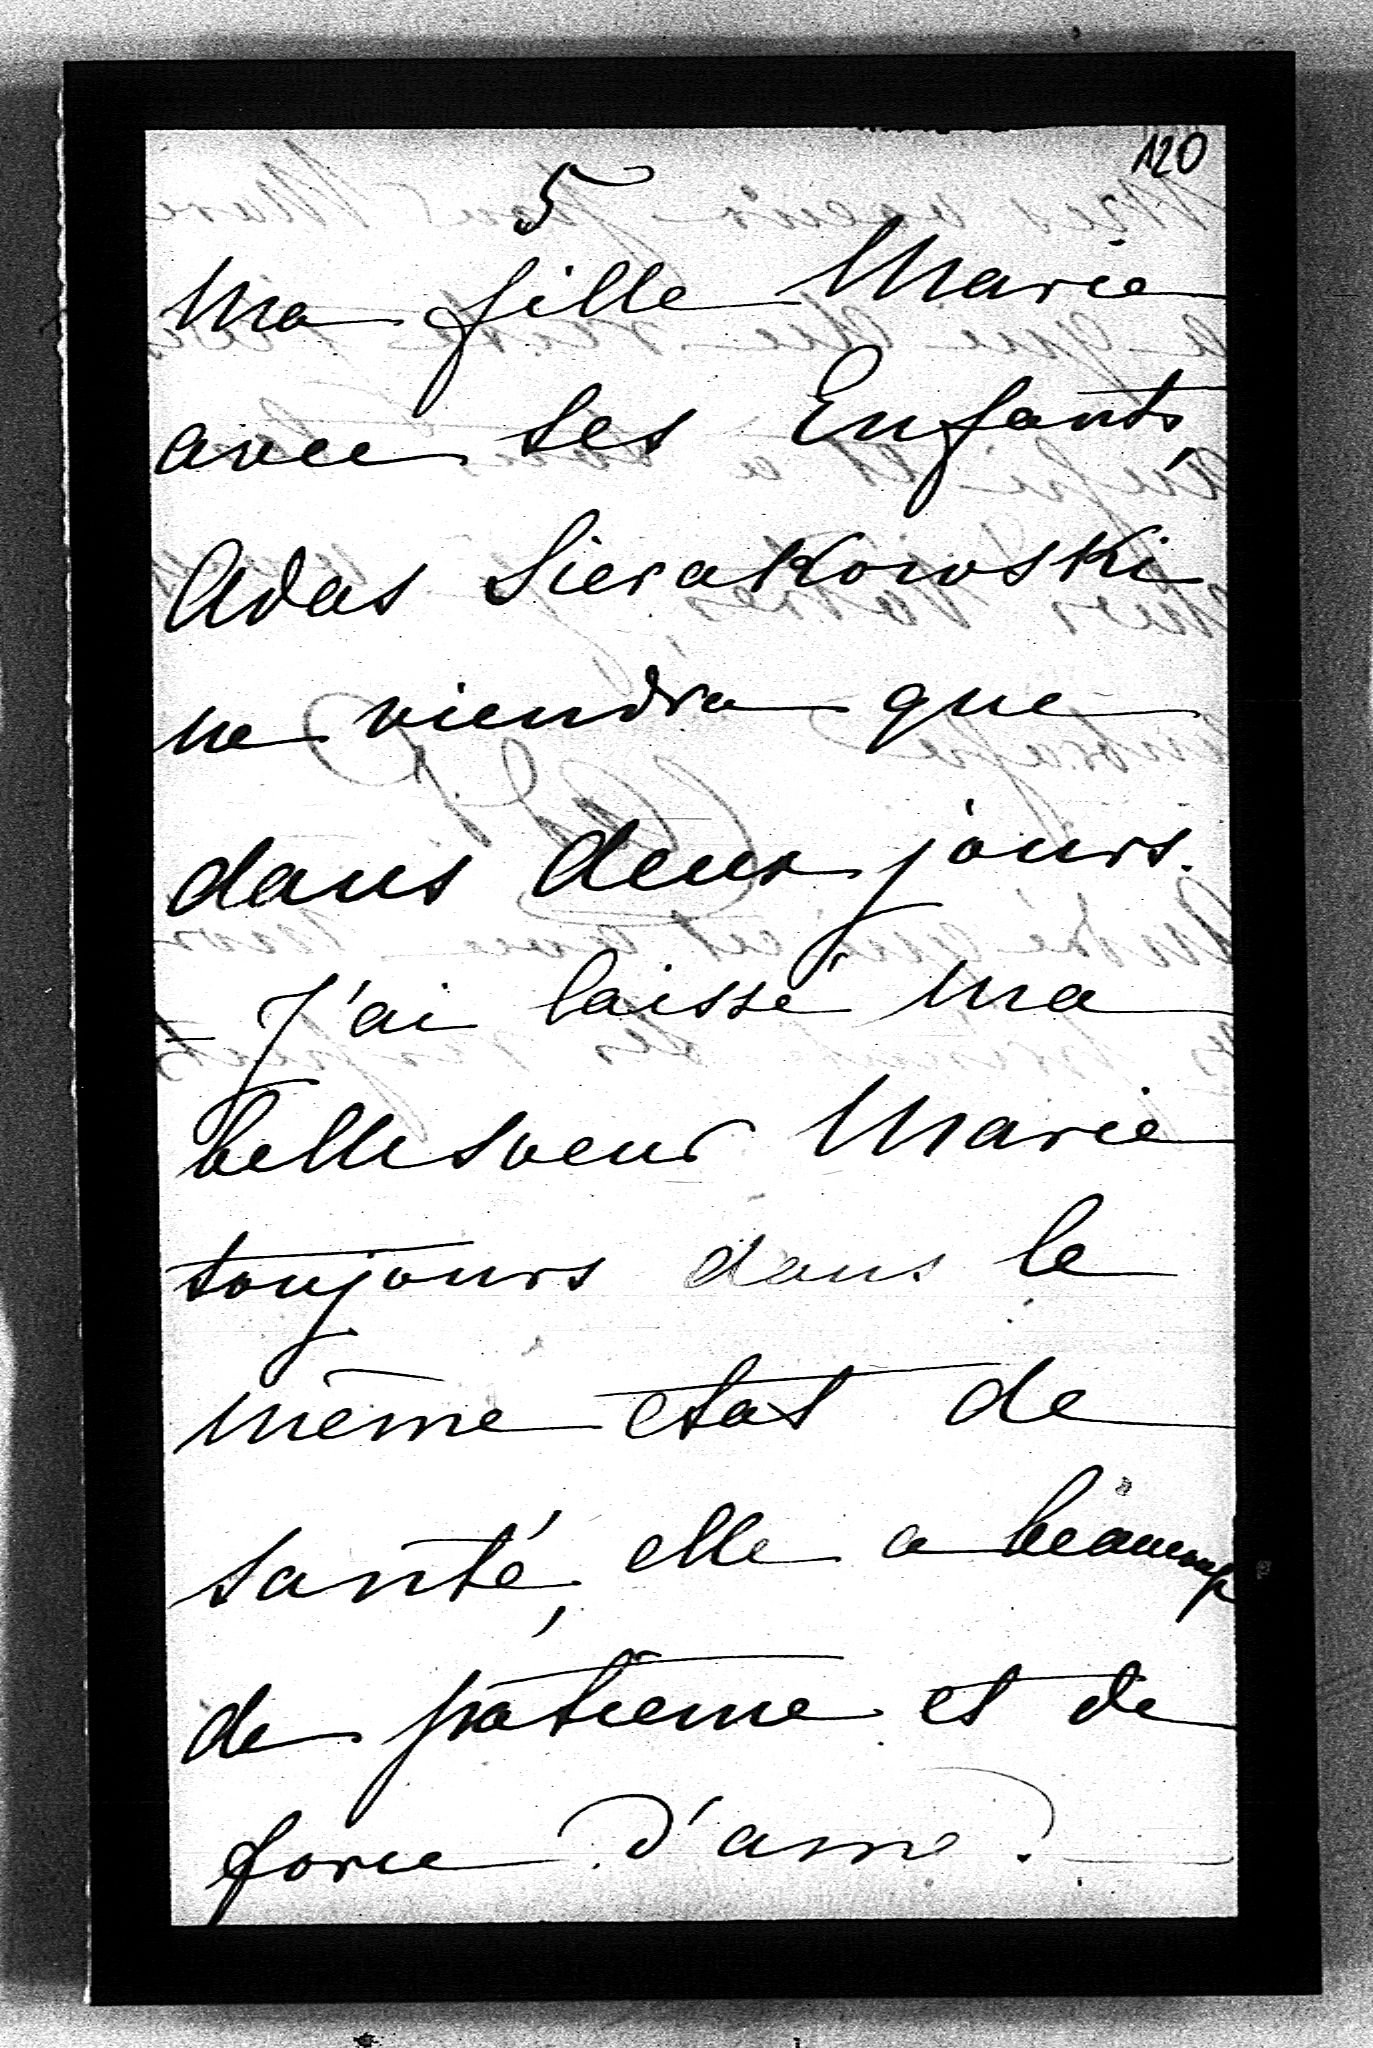 120
5
Ma fille Marie
avec ses Enfants,
Adas Sierakowski
ne viendra que
dans deux jours.
- J'ai laissé ma
belle soeur Marie
toujours dans le
même etat de
santé, elle a beaucoup
de patience et de
force d'ame.